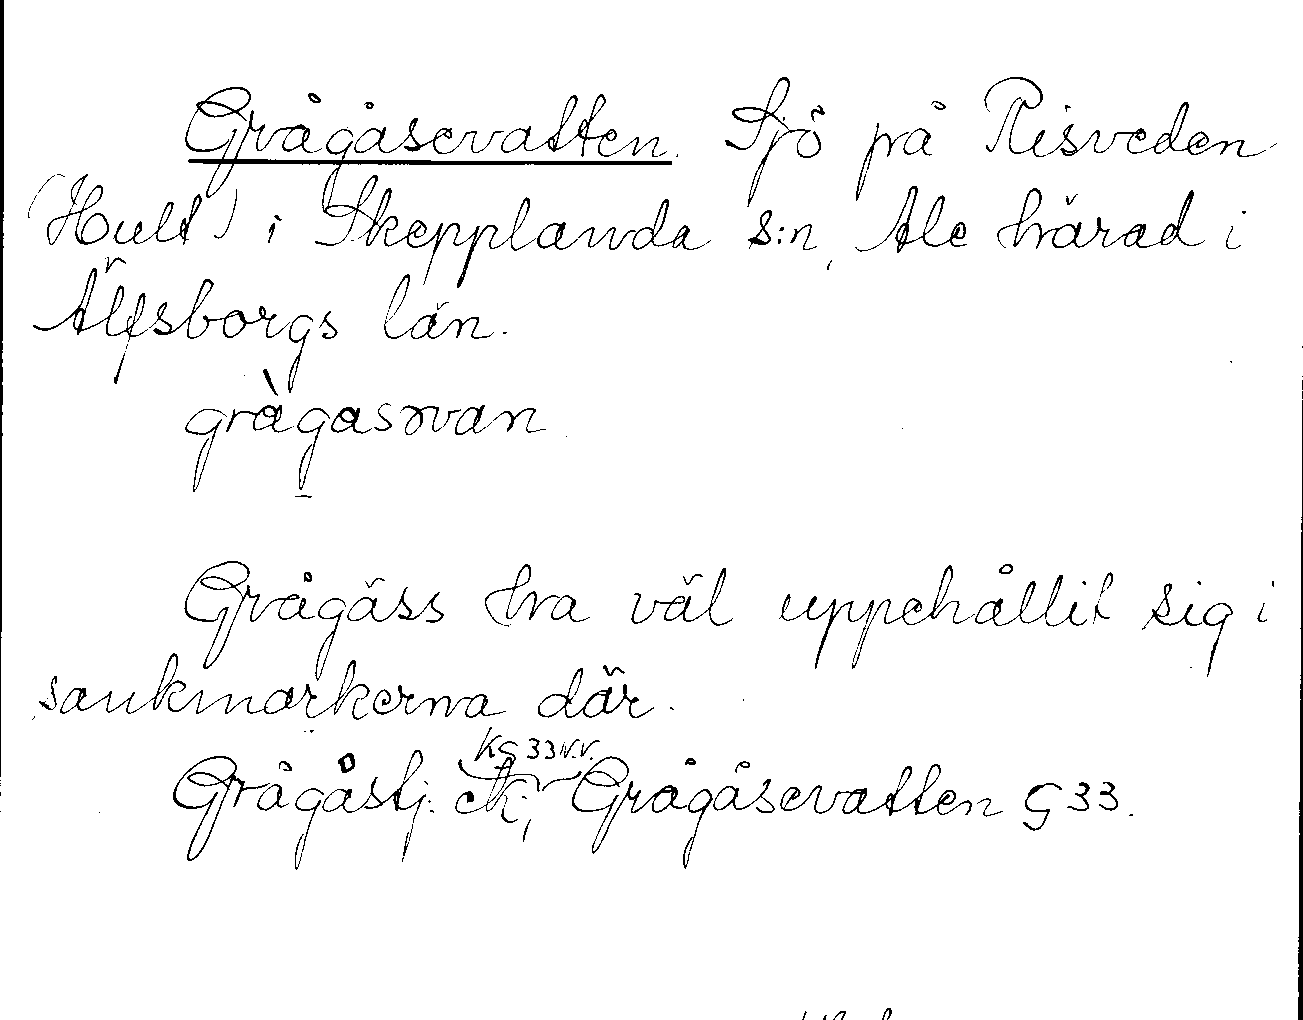 Grågåsevatten. Sjö på Risveden
(Hult) i Skepplanda s:n, Ale härad i
Älfsborgs län.
grågasəvan
Grågäss ha väl uppehållit sig i
sankmarkerna där.
KG 33 N.V.
Grågåstj. ek; Grågåsevatten G 33.